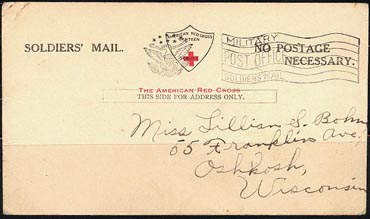 SOLDIERS' MAIL.
AMERICAN RED CROSS
CANTEEN
MILITARY
POST OFFICE
SOLDIERS MAIL
NO POSTAGE
NECESSARY.
THE AMERICAN RED CROSS
THIS SIDE FOR ADDRESS ONLY.
Miss Lillian S. Bohm
55 Franklin Ave.
Oshkosh,
Wisconsin